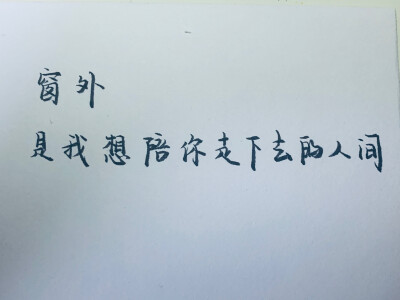 窗外
是我想陪你走下去的人间